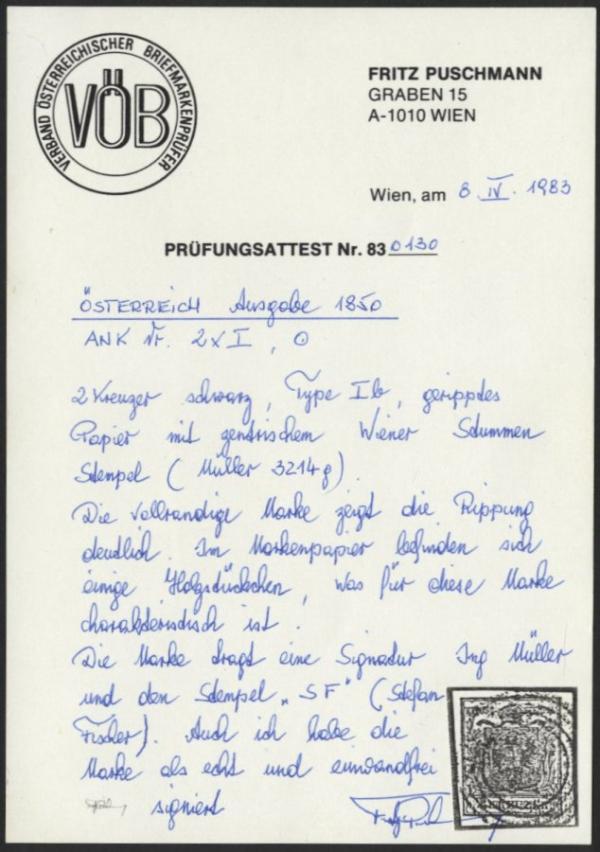 VERBAND ÖSTERREICHISCHER BRIEFMARKENPRÜFER
VÖB
FRITZ PUSCHMANN
GRABEN 15
A-1010 WIEN
Wien, am 8. IV. 1983
PRÜFUNGSATTEST Nr. 83 0130
ÖSTERREICH Ausgabe 1850
ANK Nr. 2xI, ⊙
2 Kreuzer schwarz, Type Ib, geripptes
Papier mit zentrischem Wiener Stummen
Stempel (Müller 3214g).
Die vollrandige Marke zeigt die Rippung
deutlich. Im Markenpapier befinden sich
einige Holzstückchen, was für diese Marke
charakteristisch ist.
Die Marke tragt eine Signatur Ing Müller
und den Stempel „SF" (Stefan
Fischer). Auch ich habe die
Marke als echt und einwandfrei
signiert
2 KREUZER